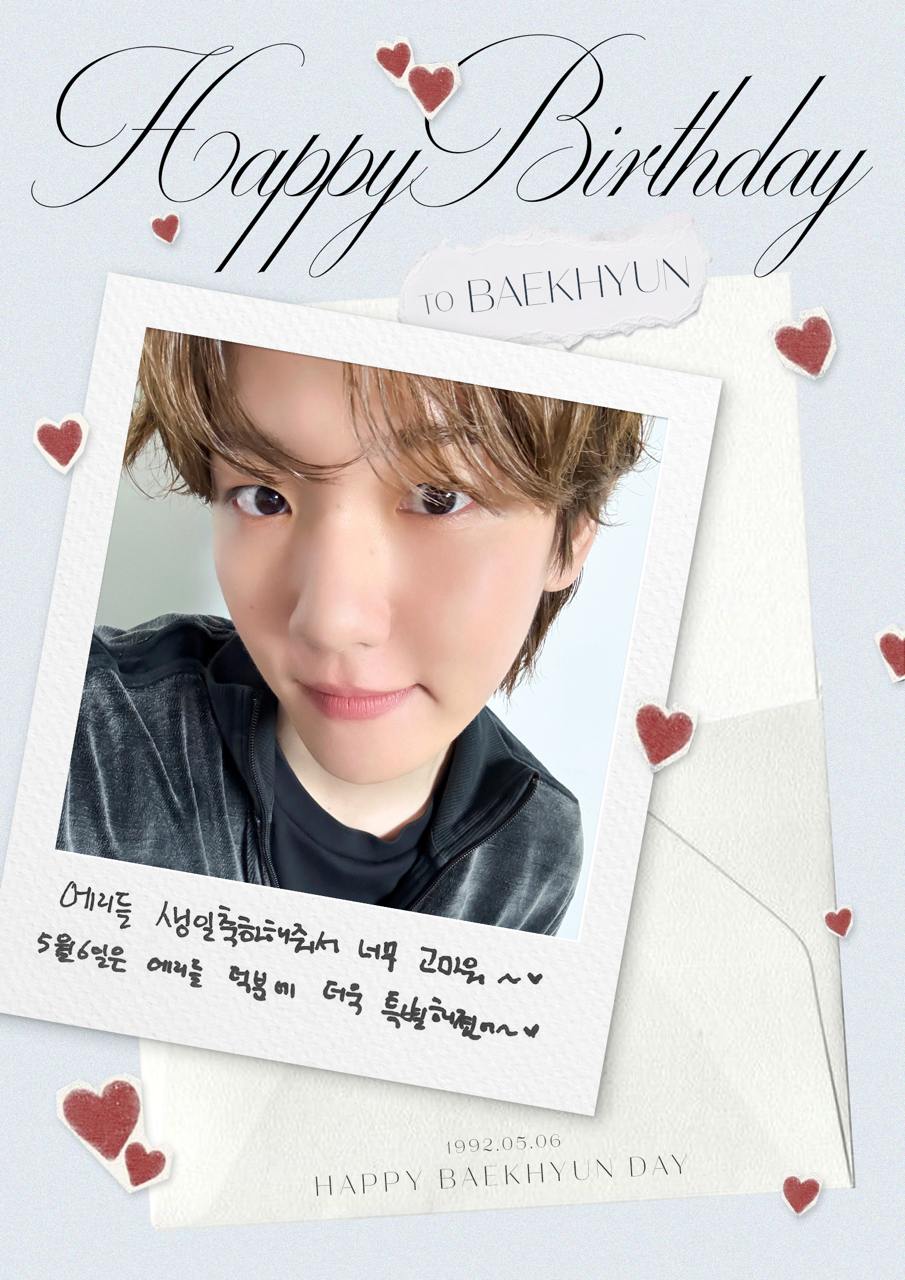 Happy Birthday
TO BAEKHYUN
에리들 생일축하해줘서 너무 고마워 ~♥
5월6일은 에리들 덕분에 더욱 특별해졌어~♥
1992.05.06
HAPPY BAEKHYUN DAY